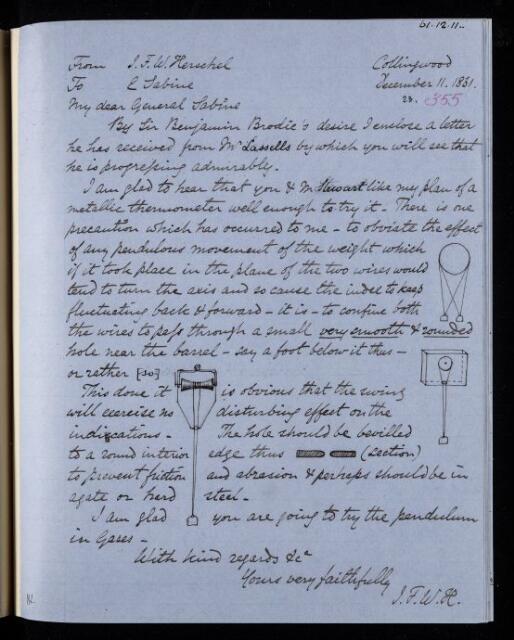 61.12.11.
From J.F.W. Herschel Collingwood
To E Sabine December 11. 1861.
23. 355
My dear General Sabine
By Sir Benjamin Brodie's desire I enclose a letter
he has received from Mr Lassells by which you will see that
he is progressing admirably.
I am glad to hear that you & Mr Stewart like my plan of a
metallic thermometer well enough to try it - There is one
precaution which has occurred to me - to obviate the effect
of any pendulous movement of the weight which
if it took place in the plane of the two wires would
tend to turn the axis and so cause the index to keep
fluctuating back & forward - it is - to confine both
the wires to pass through a small very smooth & rounded
hole near the barrel - say a foot below it thus -
or rather [so]
This done it is obvious that the swing
will exercise no disturbing effect on the
indications - The hole should be bevilled
to a round interior edge thus (section)
to prevent friction and abrasion & perhaps should be in
agate or hard steel -
I am glad you are going to try the pendulum
in Gases -
With kind regards &c
Yours very faithfully
J.F.W.H.